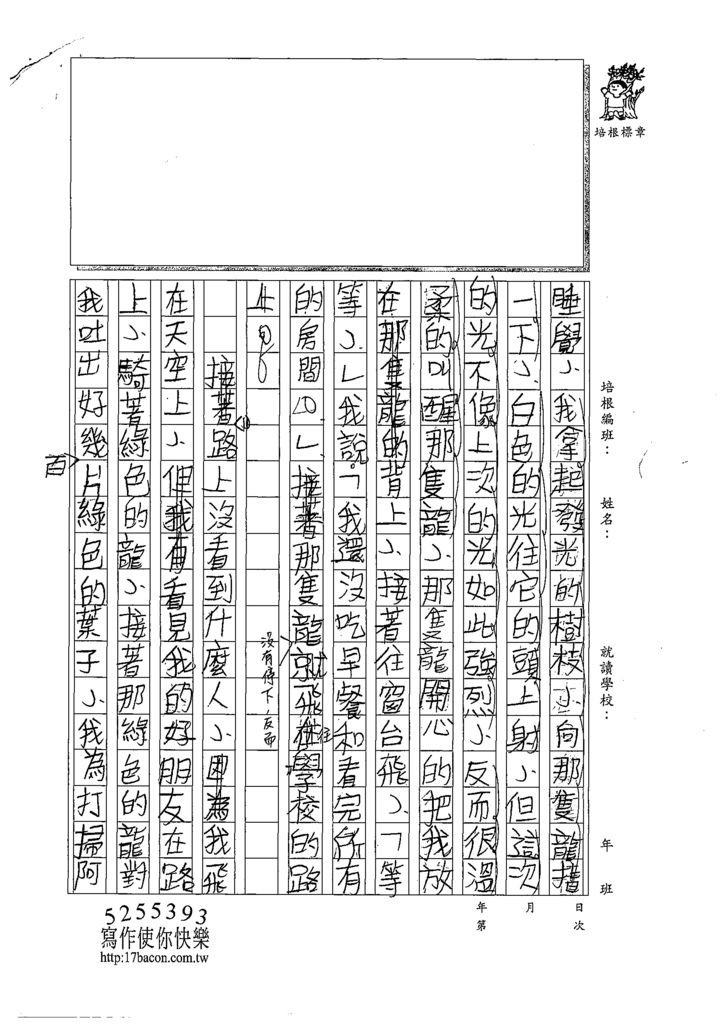 培根標章
培根編班：
姓名：
就讀學校：
年 班
睡覺，我拿起發光的樹枝，向那隻龍揸
一下，白色的光往它的頭上射，但這次
的光不像上次的光如此強烈，反而很溫
柔的叫醒那隻龍，那隻龍開心的把我放
在那隻龍的背上，接著往窗台飛，「等
等，」我說。「我還沒吃早餐和看完所有
的房間。」接著那隻龍就飛往學校的路
沒有停下，反而
上。
接著路上沒看到什麼人，因為我飛
在天空上，但我有看見我的好朋友在路
上，騎著綠色的龍，接著那綠色的龍對
我吐出好幾百片綠色的葉子，我為打掃阿
年 月 日
第 次
5255393
寫作使你快樂
http:17bacon.com.tw